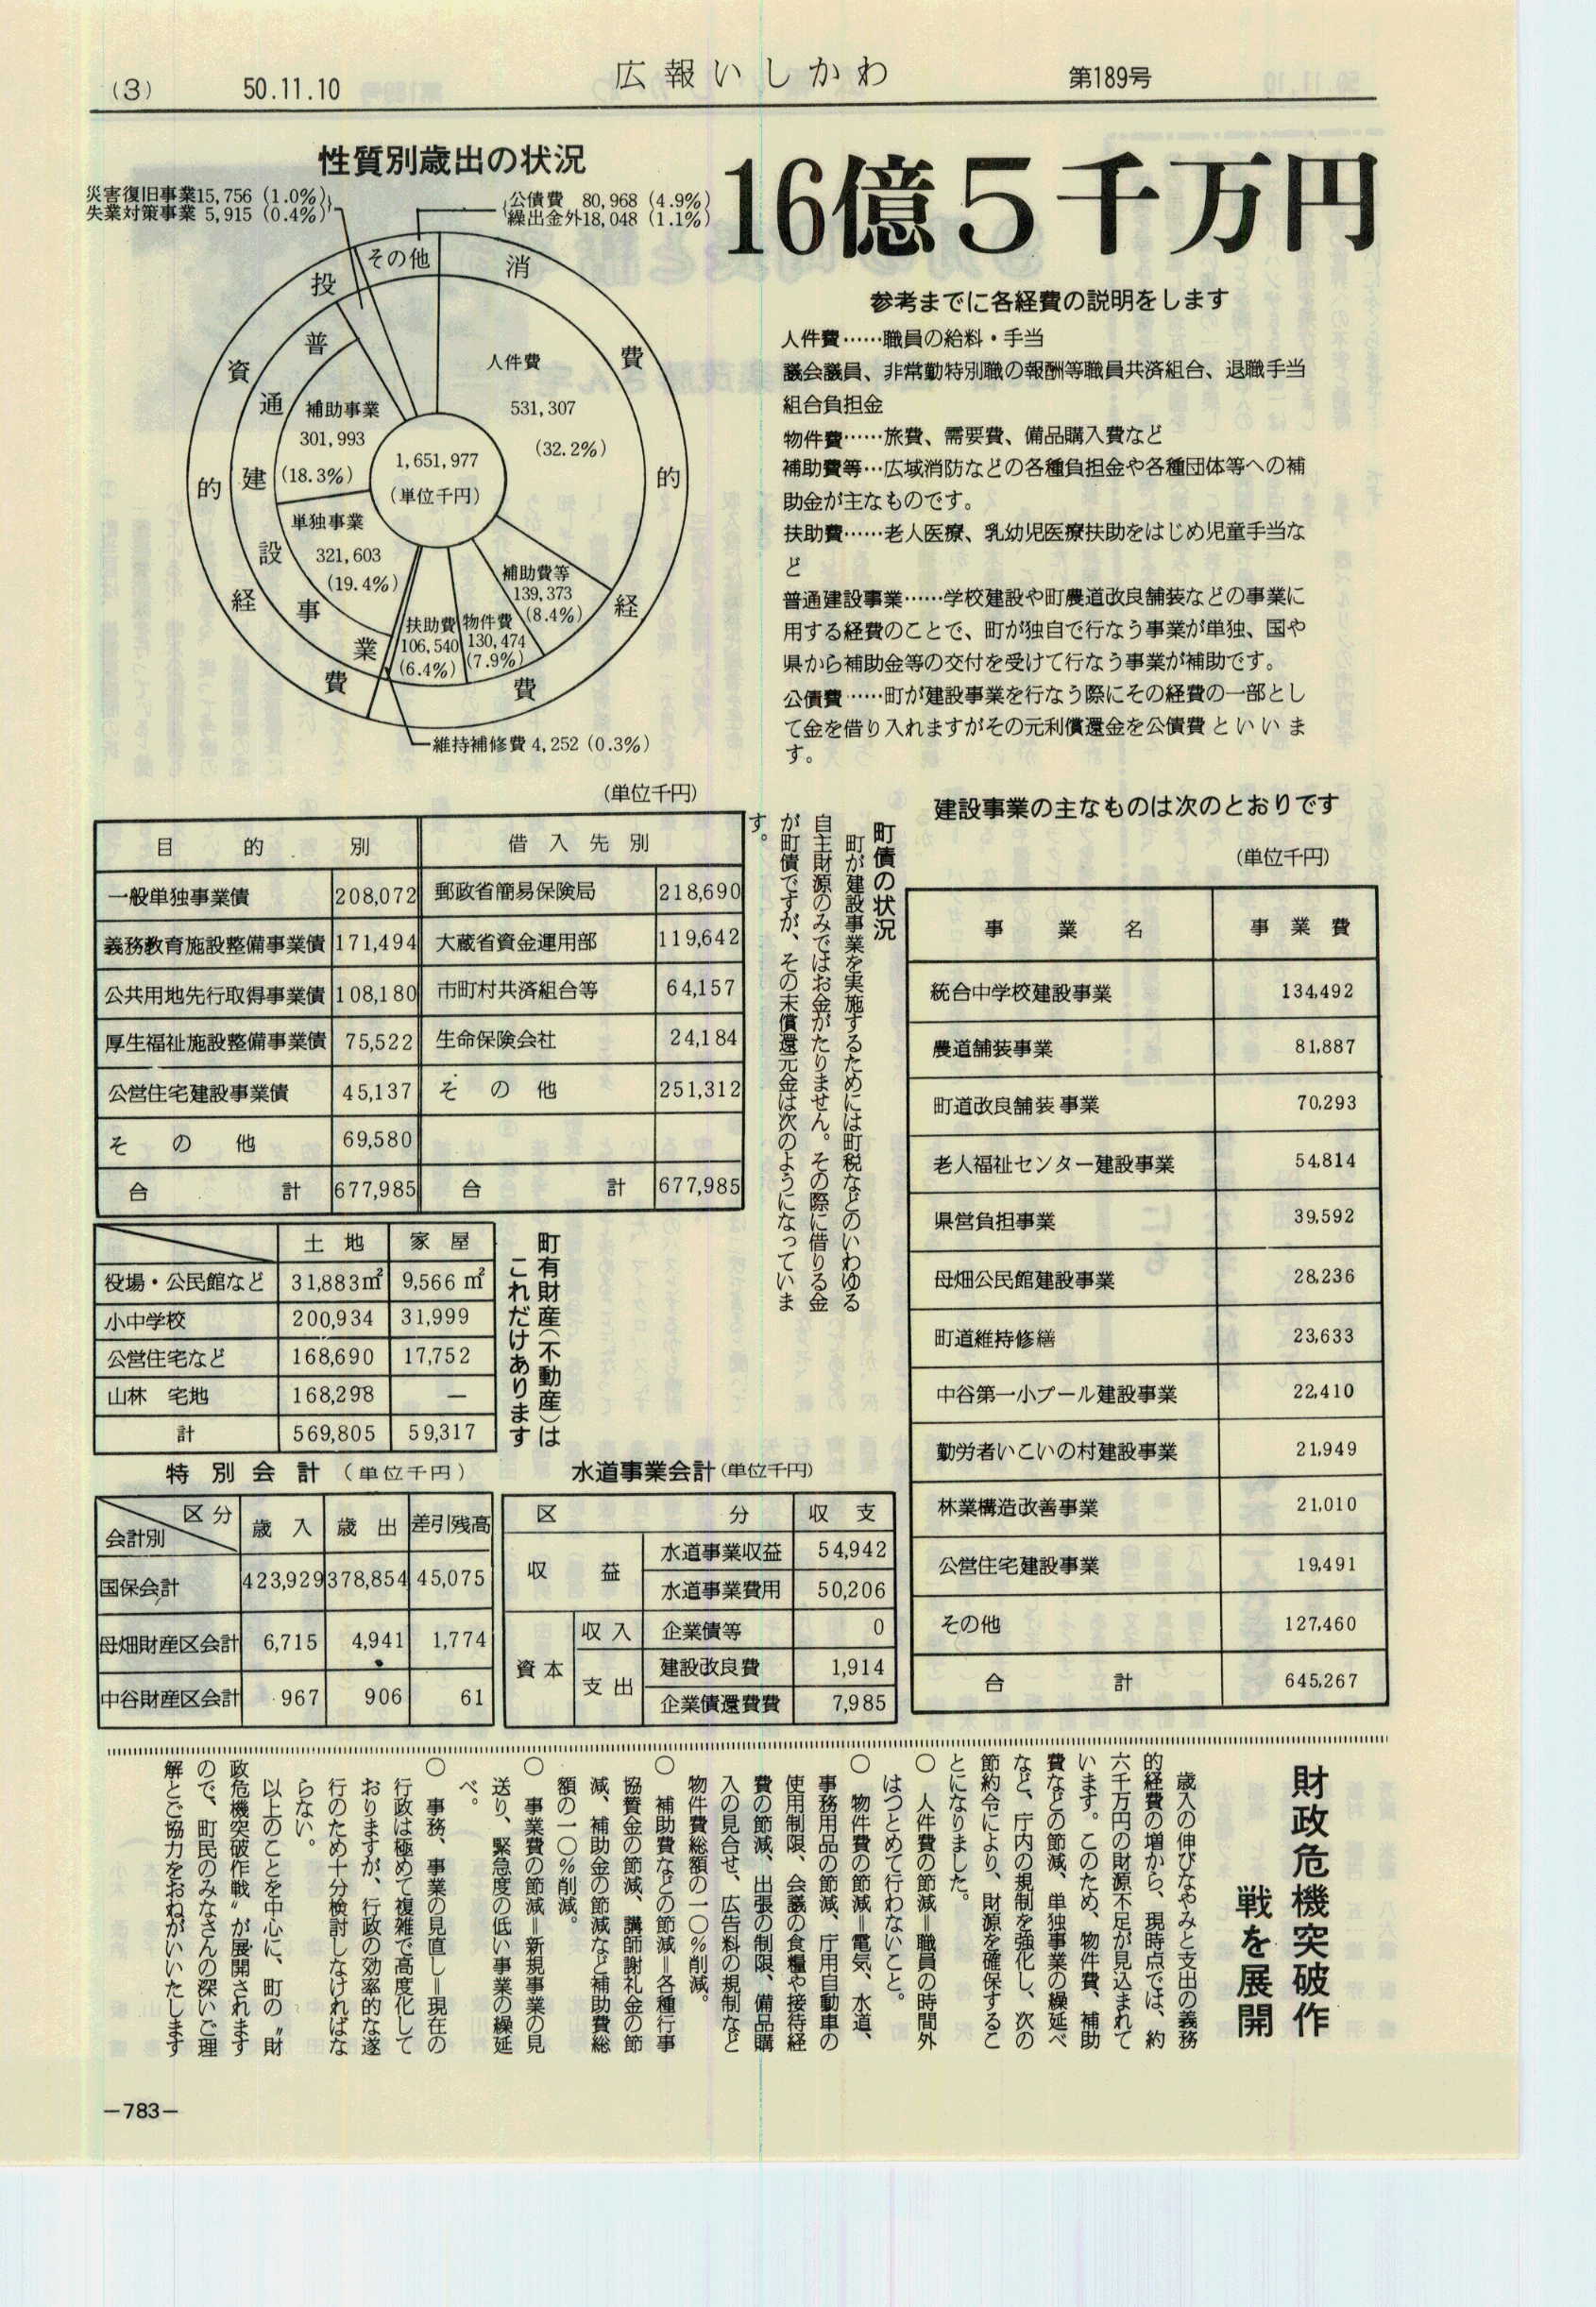 (3)
50.11.10
広報いしかわ
第189号
16億5千万円
性質別歳出の状況
災害復旧事業15,756 (1.0%)
失業対策事業 5,915 (0.4%)
公債費 80,968 (4.9%)
繰出金外18,048 (1.1%)
その他
消費的経費
投資的経費
普通建設事業
人件費
531,307
(32.2%)
補助事業
301,993
(18.3%)
1,651,977
(単位千円)
単独事業
321,603
(19.4%)
補助費等
139,373
(8.4%)
扶助費
106,540
(6.4%)
物件費
130,474
(7.9%)
維持補修費 4,252 (0.3%)
参考までに各経費の説明をします
人件費……職員の給料・手当
議会議員、非常勤特別職の報酬等職員共済組合、退職手当
組合負担金
物件費……旅費、需要費、備品購入費など
補助費等…広域消防などの各種負担金や各種団体等への補
助金が主なものです。
扶助費……老人医療、乳幼児医療扶助をはじめ児童手当な
ど
普通建設事業……学校建設や町農道改良舗装などの事業に
用する経費のことで、町が独自で行なう事業が単独、国や
県から補助金等の交付を受けて行なう事業が補助です。
公債費……町が建設事業を行なう際にその経費の一部とし
て金を借り入れますがその元利償還金を公債費といいま
す。
建設事業の主なものは次のとおりです
(単位千円)
事業名 事業費
統合中学校建設事業 134,492
農道舗装事業 81,887
町道改良舗装事業 70,293
老人福祉センター建設事業 54,814
県営負担事業 39,592
母畑公民館建設事業 28,236
町道維持修繕 23,633
中谷第一小プール建設事業 22,410
勤労者いこいの村建設事業 21,949
林業構造改善事業 21,010
公営住宅建設事業 19,491
その他 127,460
合計 645,267
町債の状況
町が建設事業を実施するためには町税などのいわゆる
自主財源のみではお金がたりません。その際に借りる金
が町債ですが、その末償還元金は次のようになっていま
す。
(単位千円)
目的別 借入先別
一般単独事業債 208,072 郵政省簡易保険局 218,690
義務教育施設整備事業債 171,494 大蔵省資金運用部 119,642
公共用地先行取得事業債 108,180 市町村共済組合等 64,157
厚生福祉施設整備事業債 75,522 生命保険会社 24,184
公営住宅建設事業債 45,137 その他 251,312
その他 69,580
合計 677,985 合計 677,985
町有財産(不動産)は
これだけあります
土地 家屋
役場・公民館など 31,883㎡ 9,566㎡
小中学校 200,934 31,999
公営住宅など 168,690 17,752
山林 宅地 168,298 —
計 569,805 59,317
特別会計(単位千円)
区分 会計別 歳入 歳出 差引残高
国保会計 423,929 378,854 45,075
母畑財産区会計 6,715 4,941 1,774
中谷財産区会計 967 906 61
水道事業会計(単位千円)
区分 収支
収益 水道事業収益 54,942
水道事業費用 50,206
資本 収入 企業債等 0
支出 建設改良費 1,914
企業債還費費 7,985
財政危機突破作
戦を展開
歳入の伸びなやみと支出の義務
的経費の増から、現時点では、約
六千万円の財源不足が見込まれて
います。このため、物件費、補助
費などの節減、単独事業の繰延べ
など、庁内の規制を強化し、次の
節約令により、財源を確保するこ
とになりました。
○ 人件費の節減＝職員の時間外
はつとめて行わないこと。
○ 物件費の節減＝電気、水道、
事務用品の節減、庁用自動車の
使用制限、会議の食糧や接待経
費の節減、出張の制限、備品購
入の見合せ、広告料の規制など
物件費総額の一〇％削減。
○ 補助費などの節減＝各種行事
協賛金の節減、講師謝礼金の節
減、補助金の節減など補助費総
額の一〇％削減。
○ 事業費の節減＝新規事業の見
送り、緊急度の低い事業の繰延
べ。
○ 事務、事業の見直し＝現在の
行政は極めて複雑で高度化して
おりますが、行政の効率的な遂
行のため十分検討しなければな
らない。
以上のことを中心に、町の〝財
政危機突破作戦〟が展開されます
ので、町民のみなさんの深いご理
解とご協力をおねがいいたします
—783—